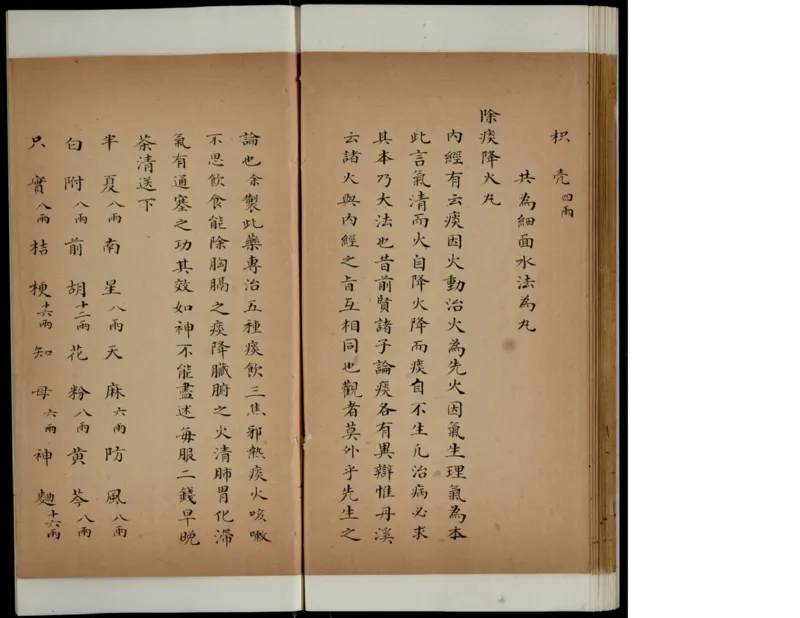 枳壳四兩
共為細面水法為丸
除痰降火丸
內經有云痰因火動治火為先火因氣生理氣為本
此言氣清而火自降火降而痰自不生凡治病必求
其本乃大法也昔前賢諸子論痰各有異辯惟丹溪
云諸火與內經之旨互相同也觀者莫外乎先生之
論也余製此藥專治五種痰飲三焦邪熱痰火咳嗽
不思飲食能除胸膈之痰降臟腑之火清肺胃化滯
氣有通塞之功其效如神不能盡述每服二錢早晚
茶清送下
半夏八兩南星八兩天麻六兩防風八兩
白附八兩前胡十二兩花粉八兩黃芩八兩
只實八兩桔梗十六兩知母六兩神麯十六兩